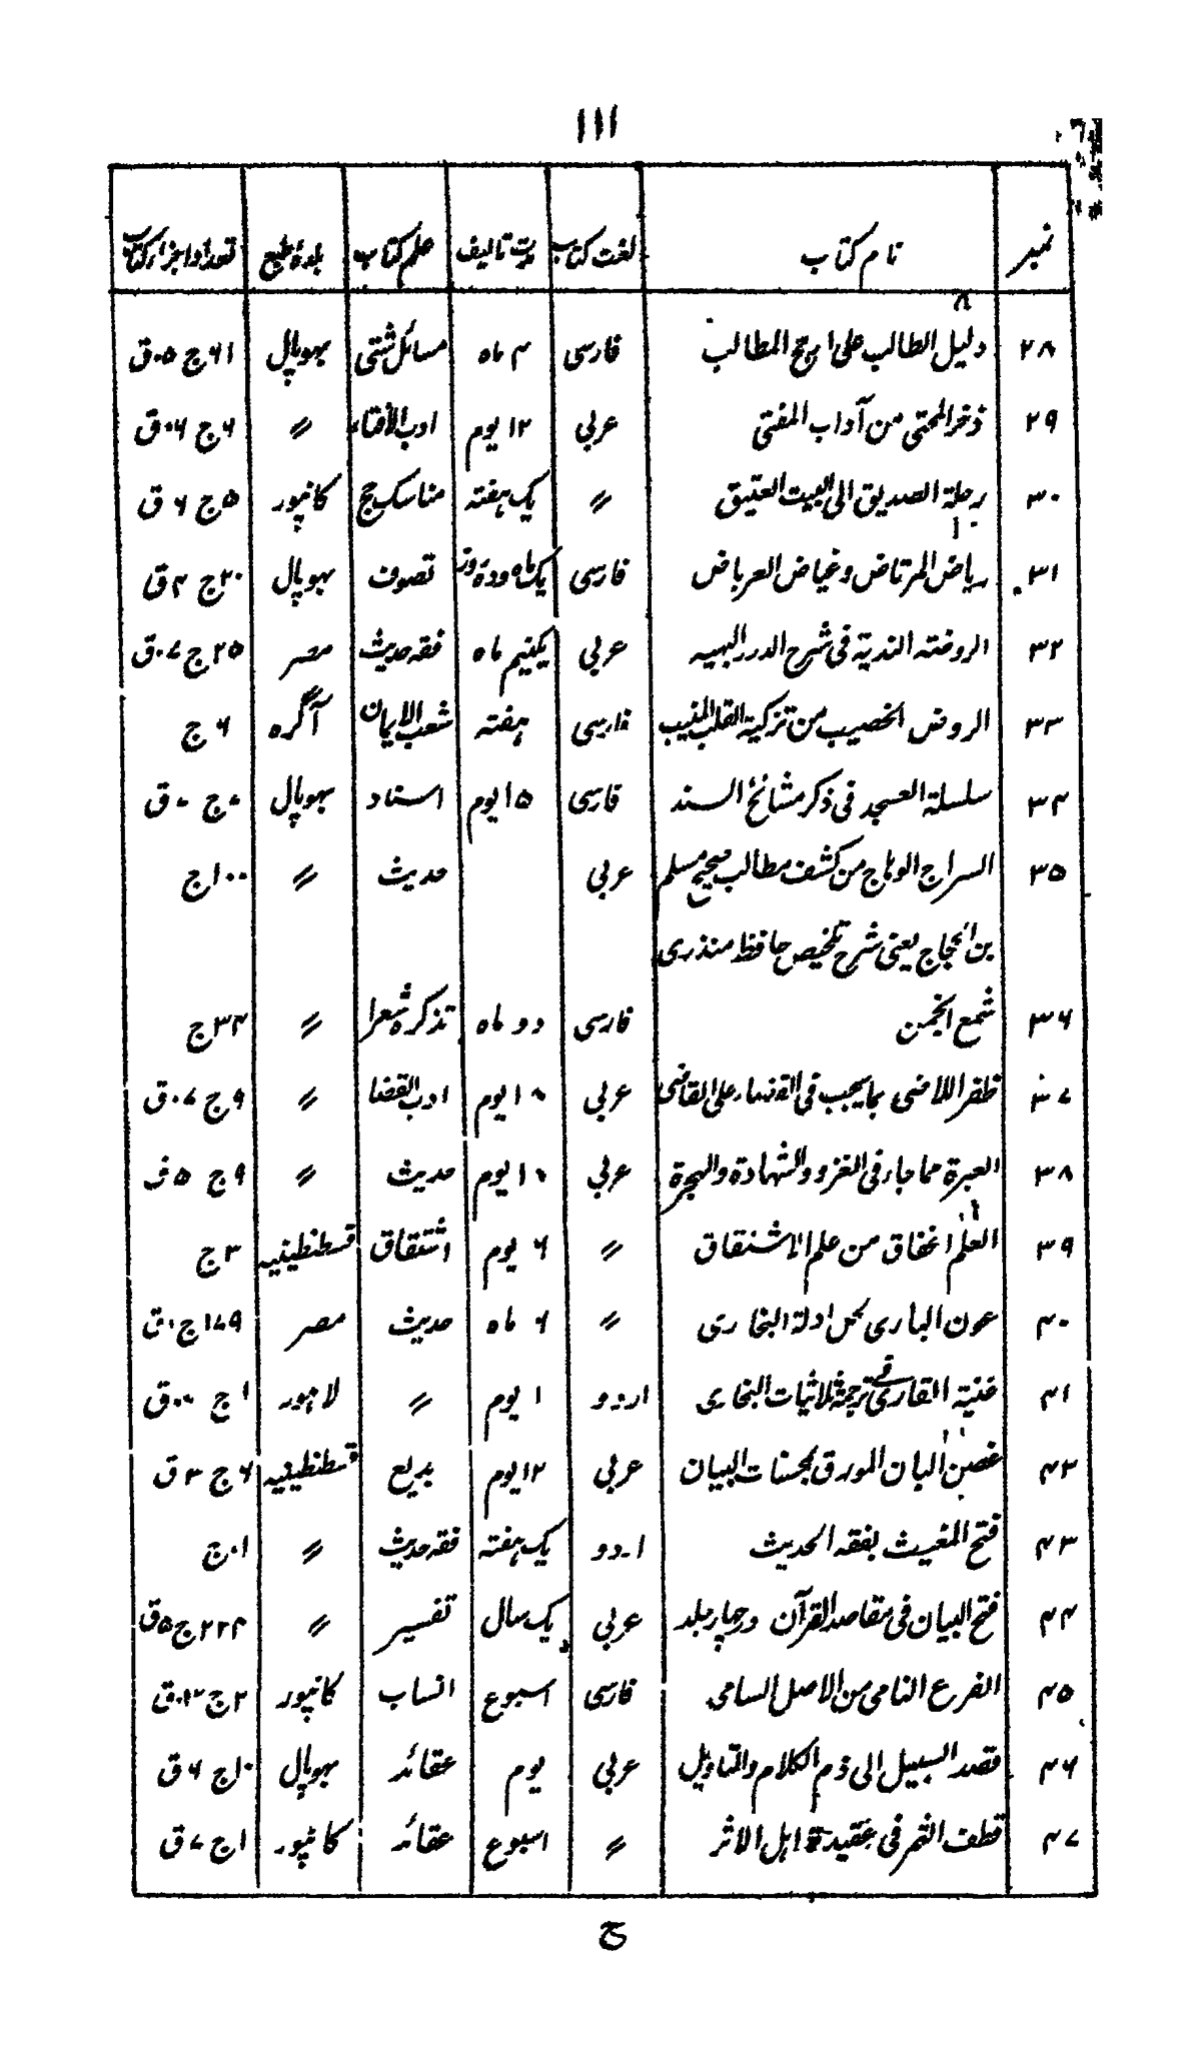 ۱۱۱
نمبر نام کتاب لغت کتاب مدت تالیف علم کتاب بلدۂ طبع تعداد اجزاء کتاب
۲۸ دلیل الطالب علی ارجح المطالب فارسی ۴ ماہ مسائل شتی بہوپال ۶۱ج ۵۰ق
۲۹ ذخر المحتی من آداب المفتی عربی ۱۲ یوم ادب الافتاء 〃 ۶ج ۰۶ق
۳۰ رحلة الصدیق الی البیت العتیق 〃 یک ہفتہ مناسک حج کانپور ۵ج ۶ ق
۳۱ ریاض المرتاض وغیاض العرباض فارسی یک ماہ ودہ روز تصوف بہوپال ۲۰ج ۴ق
۳۲ الروضتہ الندیة فی شرح الدرر البہیہ عربی یکنیم ماہ فقہ حدیث مصر ۲۵ج ۰۷ق
۳۳ الروض الخصیب من تزکیة القلب المنیب فارسی ہفتہ شعب الایمان آگرہ ۶ ج
۳۴ سلسلة العسجد فی ذکر مشائخ السند فارسی ۱۵ یوم اسناد بہوپال ۷ج ۷ق
۳۵ السراج الوہاج من کشف مطالب صحیح مسلم عربی حدیث 〃 ۱۰۰ج
بن الحجاج یعنی شرح تلخیص حافظ منذری
۳۶ شمع انجمن فارسی دو ماہ تذکرہ شعرا 〃 ۳۴ج
۳۷ ظفر اللاضی بما یجب فی القضاء علی القاضی عربی ۱۰ یوم ادب القضا 〃 ۹ج ۰۷ق
۳۸ العبرة مما جاء فی الغزو والشہادة والہجرة عربی ۱۰ یوم حدیث 〃 ۹ج ۵ق
۳۹ العلم الخفاق من علم الاشتقاق 〃 ۶ یوم اشتقاق قسطنطینیہ ۳ج
۴۰ عون الباری لحل ادلة البخاری 〃 ۶ ماہ حدیث مصر ۱۷۹ج ۱ق
۴۱ غنیة القاری فی ترجمة ثلاثیات البخاری اردو ۱ یوم 〃 لاہور ۱ج ق
۴۲ غصن البان المورق بمحسنات البیان عربی ۱۲ یوم بدیع قسطنطینیہ ۶ج ۳ق
۴۳ فتح المغیث بفقہ الحدیث اردو یک ہفتہ فقہ حدیث 〃 ۱۰ج
۴۴ فتح البیان فی مقاصد القرآن درچہار جلد عربی یک سال تفسیر 〃 ۲۲۴ج ۵ق
۴۵ الفرع النامی من الاصل السامی فارسی اسبوع انساب کانپور ۲ج ۱۲ق
۴۶ قصد السبیل الی ذم الکلام والتاویل عربی یوم عقائد بہوپال ۱۰ج ۶ق
۴۷ قطف الثمر فی عقیدة اہل الاثر 〃 اسبوع عقائد کانپور ۱ج ۷ق
ج